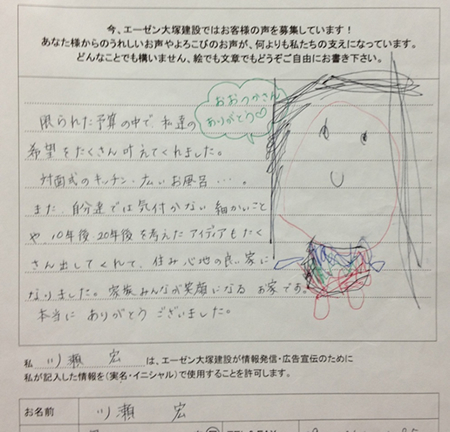 今、エーゼン大塚建設ではお客様の声を募集しています！
あなた様からのうれしいお声やよろこびのお声が、何よりも私たちの支えになっています。
どんなことでも構いません、絵でも文章でもどうぞご自由にお書き下さい。
おおつかさん
ありがとう♡
限られた予算の中で、私達の
希望をたくさん叶えてくれました。
対面式のキッチン・広いお風呂…。
また、自分達では気付かない細かいこと
や、10年後・20年後を考えたアイディアもたく
さん出してくれて、住み心地の良い家に
なりました。家族みんなが笑顔になるお家です。
本当にありがとうございました。
私 川瀬 宏 は、エーゼン大塚建設が情報発信・広告宣伝のために
私が記入した情報を(実名・イニシャル)で使用することを許可します。
お名前 川瀬 宏